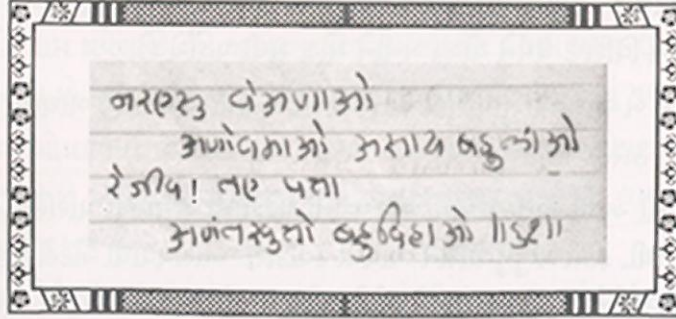 नरएसु वेअणाओ
अणोवमाओ असाय बहुलाओ
रे जीव! तए पत्ता
अणंतखुत्तो बहुविहाओ